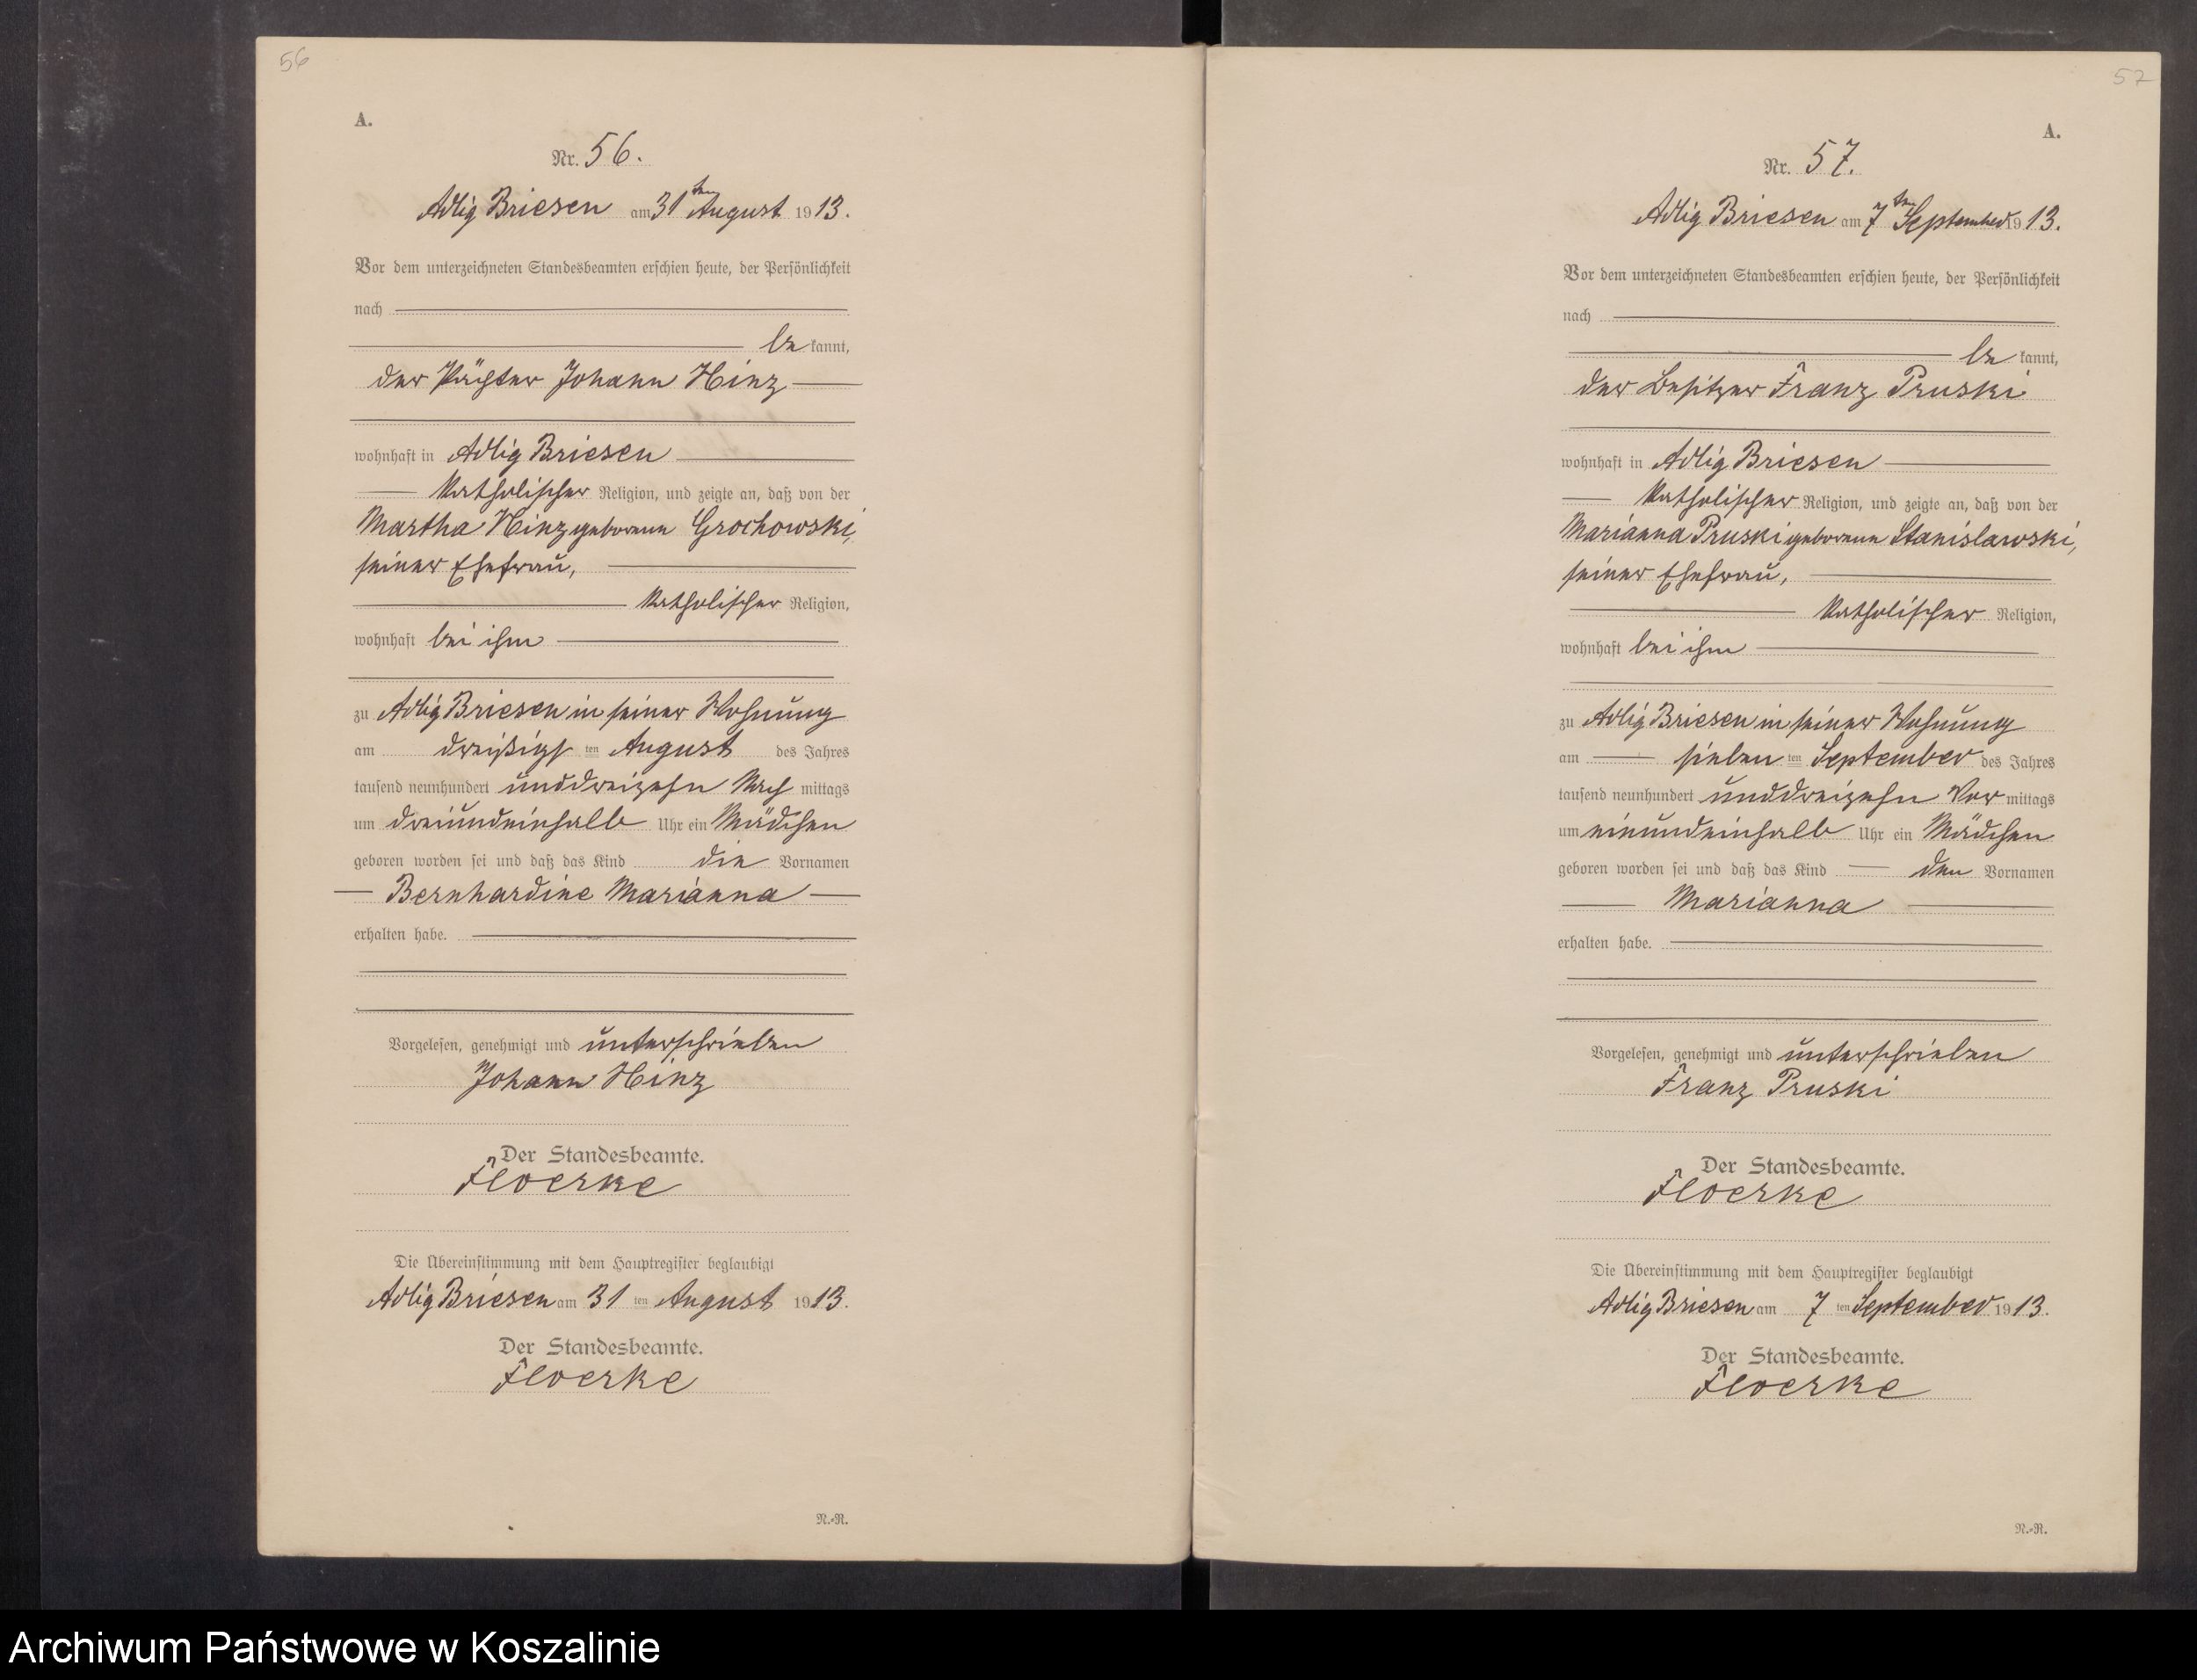 56
A.
Nr. 56.
Adlig Briesen am 31ten August 1913.
Vor dem unterzeichneten Standesbeamten erschien heute, der Persönlichkeit
nach
be kannt,
der Pächter Johann Hinz
wohnhaft in Adlig Briesen
katholischer Religion, und zeigte an, daß von der
Martha Hinz geborene Grochowski,
seiner Ehefrau,
katholischer Religion,
wohnhaft bei ihm
zu Adlig Briesen in seiner Wohnung
am dreißigs ten August des Jahres
tausend neunhundert unddreizehn Nach mittags
um dreiundeinhalb Uhr ein Mädchen
geboren worden sei und daß das Kind die Vornamen
Bernhardine Marianna
erhalten habe.
Vorgelesen, genehmigt und unterschrieben
Johann Hinz
Der Standesbeamte.
Floerke
Die Übereinstimmung mit dem Hauptregister beglaubigt
Adlig Briesen am 31 ten August 1913.
Der Standesbeamte.
Floerke
N.-R.
57
A.
Nr. 57.
Adlig Briesen am 7ten September 1913.
Vor dem unterzeichneten Standesbeamten erschien heute, der Persönlichkeit
nach
be kannt,
der Besitzer Franz Pruski
wohnhaft in Adlig Briesen
katholischer Religion, und zeigte an, daß von der
Marianna Pruski geborene Stanislawski,
seiner Ehefrau,
katholischer Religion,
wohnhaft bei ihm
zu Adlig Briesen in seiner Wohnung
am sieben ten September des Jahres
tausend neunhundert unddreizehn Vor mittags
um einundeinhalb Uhr ein Mädchen
geboren worden sei und daß das Kind den Vornamen
Marianna
erhalten habe.
Vorgelesen, genehmigt und unterschrieben
Franz Pruski
Der Standesbeamte.
Floerke
Die Übereinstimmung mit dem Hauptregister beglaubigt
Adlig Briesen am 7 ten September 1913.
Der Standesbeamte.
Floerke
N.-R.
Archiwum Państwowe w Koszalinie